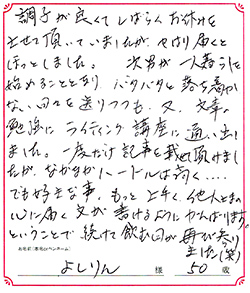 調子が良くてしばらくお休みを
させて頂いていましたが、やはり届くと
ほっとしました。 次男が一人暮らしを
始めることとなり、バタバタと落ち着か
ない日々を送りつつも、又、文章の
勉強にライティング講座に通い出し
ました。一度だけ記事を載せ頂けまし
たが、なかなかハードルは高く‥‥
でも好きな事。もっと上手く、他人さまの
心に届く文が書けるようにがんばります。
ということで、続けて飲む日が再び参り
ました(笑)
お名前(本名orペンネーム)
よしりん 様 50 歳